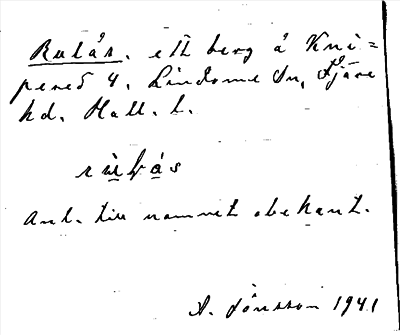 Rulås. ett berg å Kni=
pered 4. Lindome sn, Fjäre
hd. Hall. l.
Anl. till namnet obekant.
A. Jönsson 1941